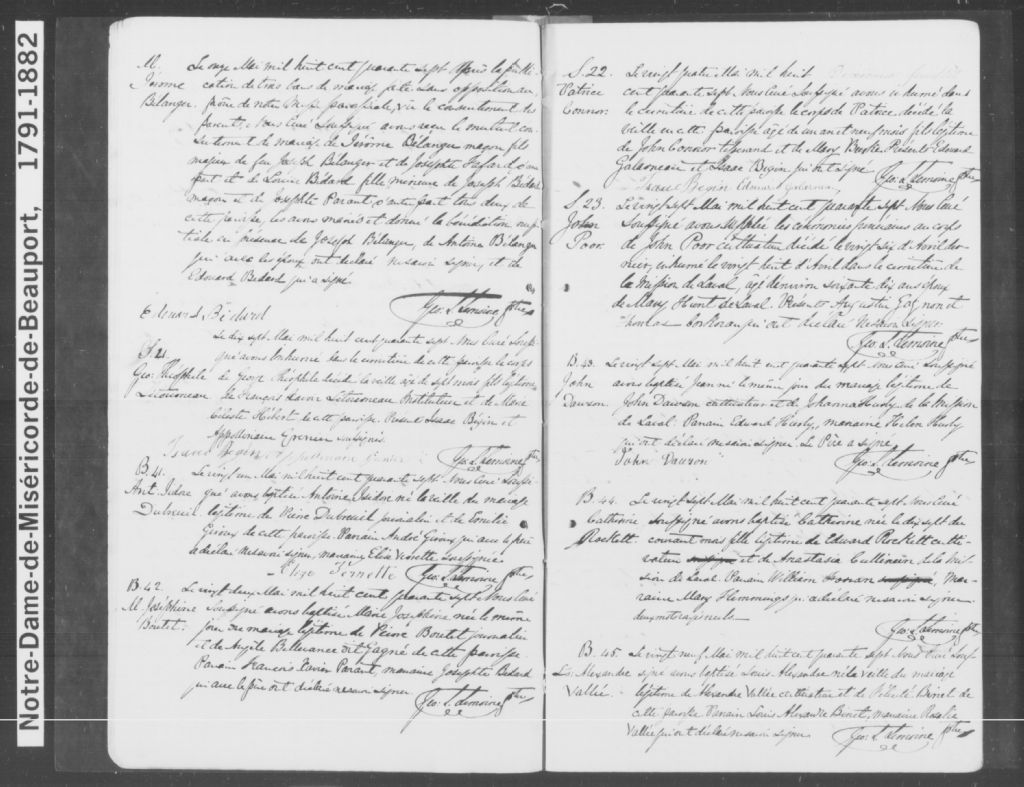 Notre-Dame-de-Miséricorde-de-Beauport, 1791-1882
M. Le onze Mai mil huit cent quarante sept Après la publi-
Jérome cation de trois bans de mariage faite sans opposition au
Bélanger prône de notre Messe paroissiale, vu le consentement des
parents, Nous Curé Soussigné avons reçu le mutuel con-
sentement de mariage de Jérôme Bélanger maçon fils
majeur de feu Joseph Bélanger et de Josephte d'une
part et de Louise Bédard fille mineure de Joseph Bédard
maçon et de Josephte Parant, d'autre part tous deux de
cette paroisse, les avons mariés et donné la bénédiction nup-
tiale en présence de Joseph Bélanger, de Antoine Bélanger
qui avec les époux ont déclaré ne savoir signer, et de
Edouard Bedard qui a signé
Geo. S. Lemoine ptre
Edouard Bédard
Le dix sept Mai mil huit cent quarante sept Nous Curé Sous-
S. 21. signé avons inhumé dans le cimetière de cette paroisse le corps
Geo. Théophile de George Théophile décédé la veille âgé de sept mois fils légitime
Létourneau de François Xavier Létourneau Instituteur et de Marie
Céleste Hébert de cette paroisse. Présents Isaac Bégin et
Appollinaire Grenier soussignés.
Isaac Bégin Appollinaire Grenier
Geo. S. Lemoine ptre
B. 41. Le vingt un Mai mil huit cent quarante sept Nous Curé Soussi-
Ant. Isidore gné avons baptisé Antoine Isidore né la veille du mariage
Dubreuil légitime de Pierre Dubreuil journalier et de Emilie
Giroux de cette paroisse. Parrain André Giroux qui avec le père
a déclaré ne savoir signer, marraine Elise Vernette soussignée
Elize Vernette Geo. S. Lemoine ptre
B. 42. Le vingt deux Mai mil huit cent quarante sept Nous Curé
M. Joséphine Soussigné avons baptisé Marie Josephine née le même
Boutet. jour du mariage légitime de Pierre Boutet journalier
et de Angèle Bellerance dit Gagné de cette paroisse
Parrain Francois Xavier Parant, marraine Josephte Bedard
qui avec le père ont déclaré ne savoir signer.
Geo. S. Lemoine ptre
S. 22. Le vingt quatre Mai mil huit
Patrice cent quarante sept Nous Curé Soussigné avons inhumé dans
Connor. le cimetière de cette paroisse le corps de Patrice, décédé la
veille en cette paroisse âgé de un an et neuf mois fils légitime
de John Connor et de Mary Burke. Présents Edouard
Galarneau et Isaac Bégin qui ont signé
Isaac Bégin Edouard Galarneau Geo. S. Lemoine ptre
S. 23. Le vingt sept Mai mil huit cent quarante sept Nous Curé
John Soussigné avons suppléé les cérémonies funéraires au corps
Poor. de John Poor cultivateur décédé le vingt six d'Avril der-
nier, inhumé le vingt huit d'Avril dans le cimetière de
la Mission de Laval, âgé d'environ soixante dix ans époux
de Mary Hunt de Laval. Présents Augustin Gagnon et
Thomas Corkoran qui ont déclaré ne savoir signer
Geo. S. Lemoine ptre
B. 43. Le vingt sept Mai mil huit cent quarante sept Nous Curé Soussigné
John avons baptisé Jean né le même jour du mariage légitime de
Dawson. John Dawson cultivateur et de Johanna Husly de la Mission
de Laval. Parrain Edward Husly, marraine Helen Husly
qui ont déclaré ne savoir signer. Le Père a signé
John Dawson Geo. S. Lemoine ptre
B. 44. Le vingt sept Mai mil huit cent quarante sept Nous Curé
Catherine Soussigné avons baptisé Catherine née le dix sept du
Rockett. courant mois fille légitime de Edward Rockett culti-
vateur et de Anastasia Cullinan de la Mis-
sion de Laval. Parrain William, Mar-
raine Mary Hemmings qui a déclaré ne savoir signer
deux mots rayés nuls.
Geo. S. Lemoine ptre
B. 45. Le vingt neuf Mai mil huit cent quarante sept Nous Curé Sous-
Ls. Alexandre signé avons baptisé Louis Alexandre né la veille du mariage
Vallée. légitime de Alexandre Vallée cultivateur et de Félicité Binet de
cette paroisse Parrain Louis Alexandre Binet, marraine Rosalie
Vallée qui ont déclaré ne savoir signer Geo. S. Lemoine ptre